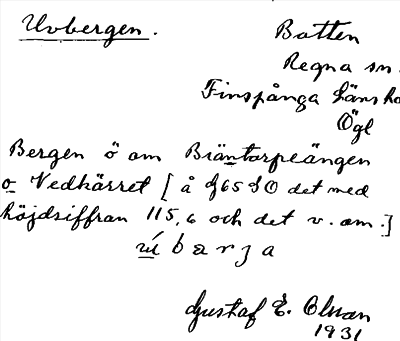 Uvbergen.
Botten
Regna sn.
Finspånga läns hd
Ögl
Bergen ö om Bräntorpeängen
o Vedkärret [å f65 SO det med
höjdsiffran 115,6 och det v. om.]
barja
Gustaf E. Olsson
1931